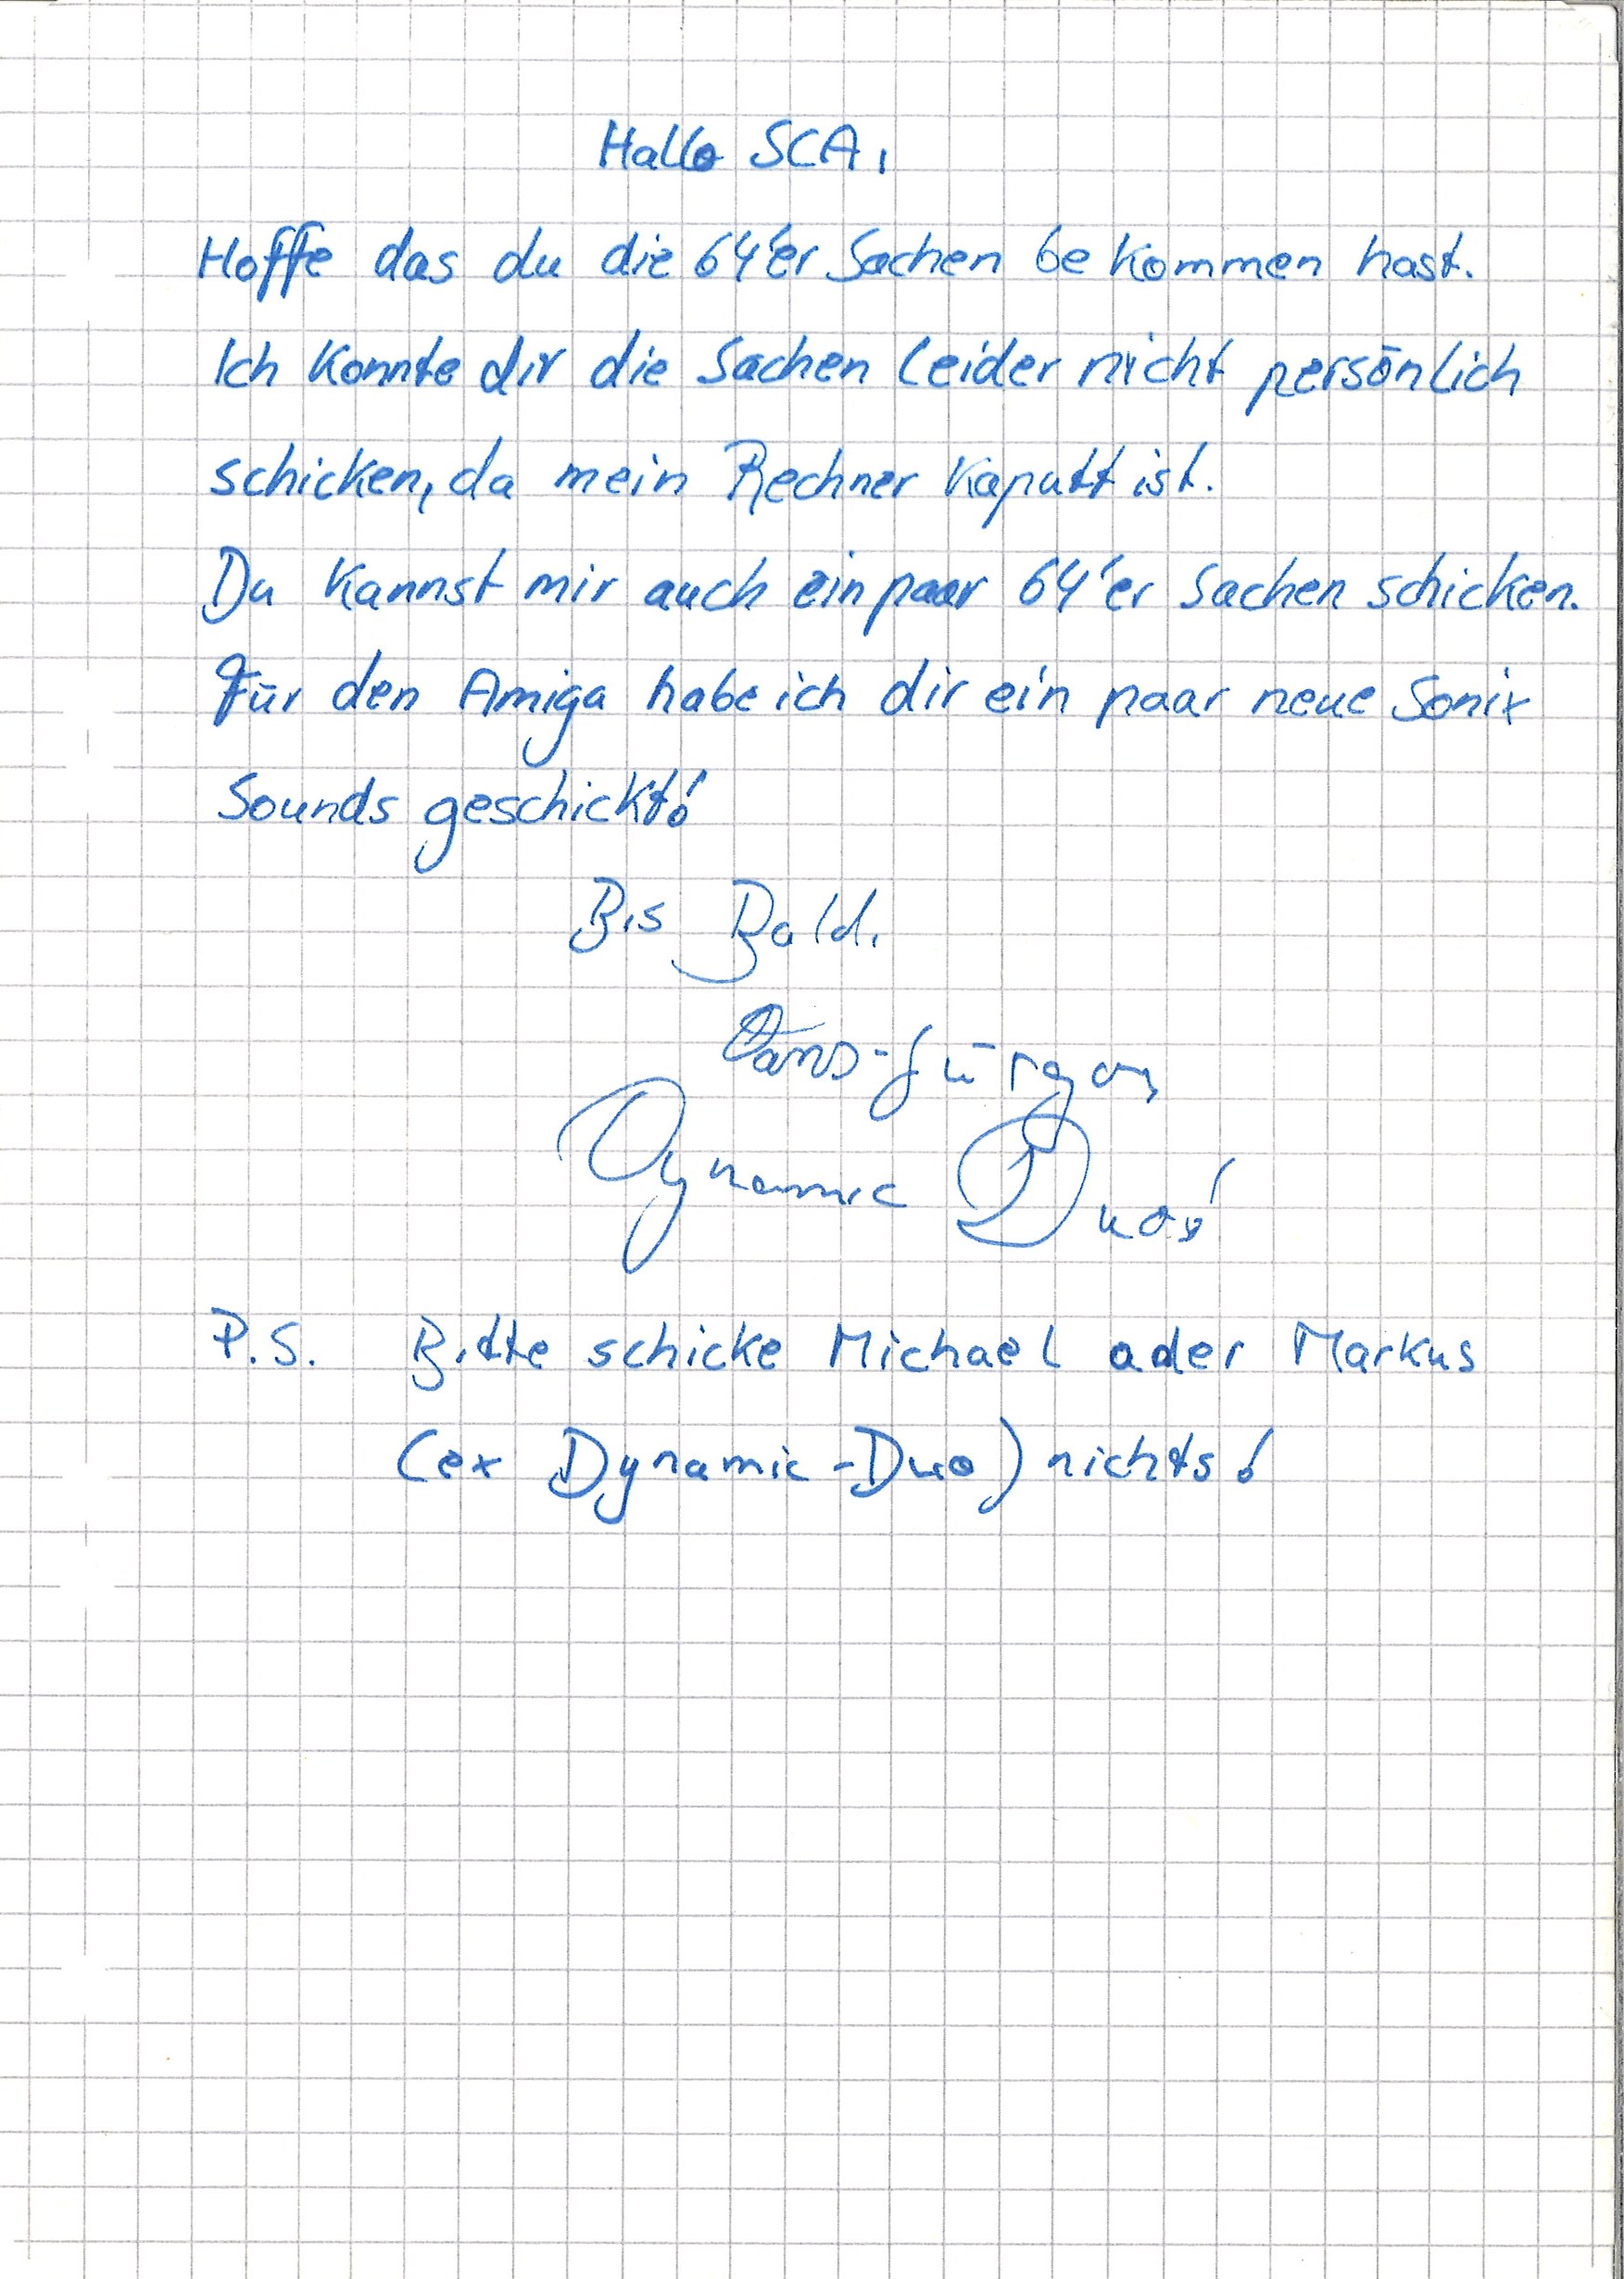 Hallo SCA,
Hoffe das du die 64'er Sachen bekommen hast.
Ich konnte dir die Sachen leider nicht persönlich
schicken, da mein Rechner kaputt ist.
Du kannst mir auch ein paar 64'er Sachen schicken.
Für den Amiga habe ich dir ein paar neue Sonix
Sounds geschickt!
Bis Bald.
Hans-Jürgen
Dynamic Duo!
P.S. Bitte schicke Michael oder Markus
(ex Dynamic-Duo) nichts!